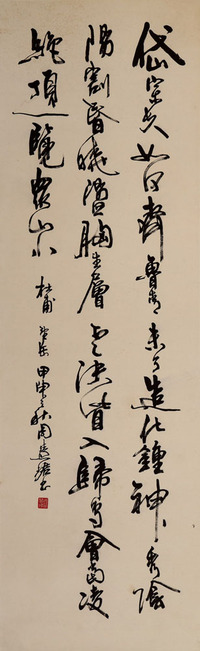 岱宗夫如何齊魯青未了造化鍾神秀陰
陽割昏曉盪胸生層云決眥入歸鳥會當凌
絕頂一覽眾山小
杜甫望岳 甲申之秋周慧珺書